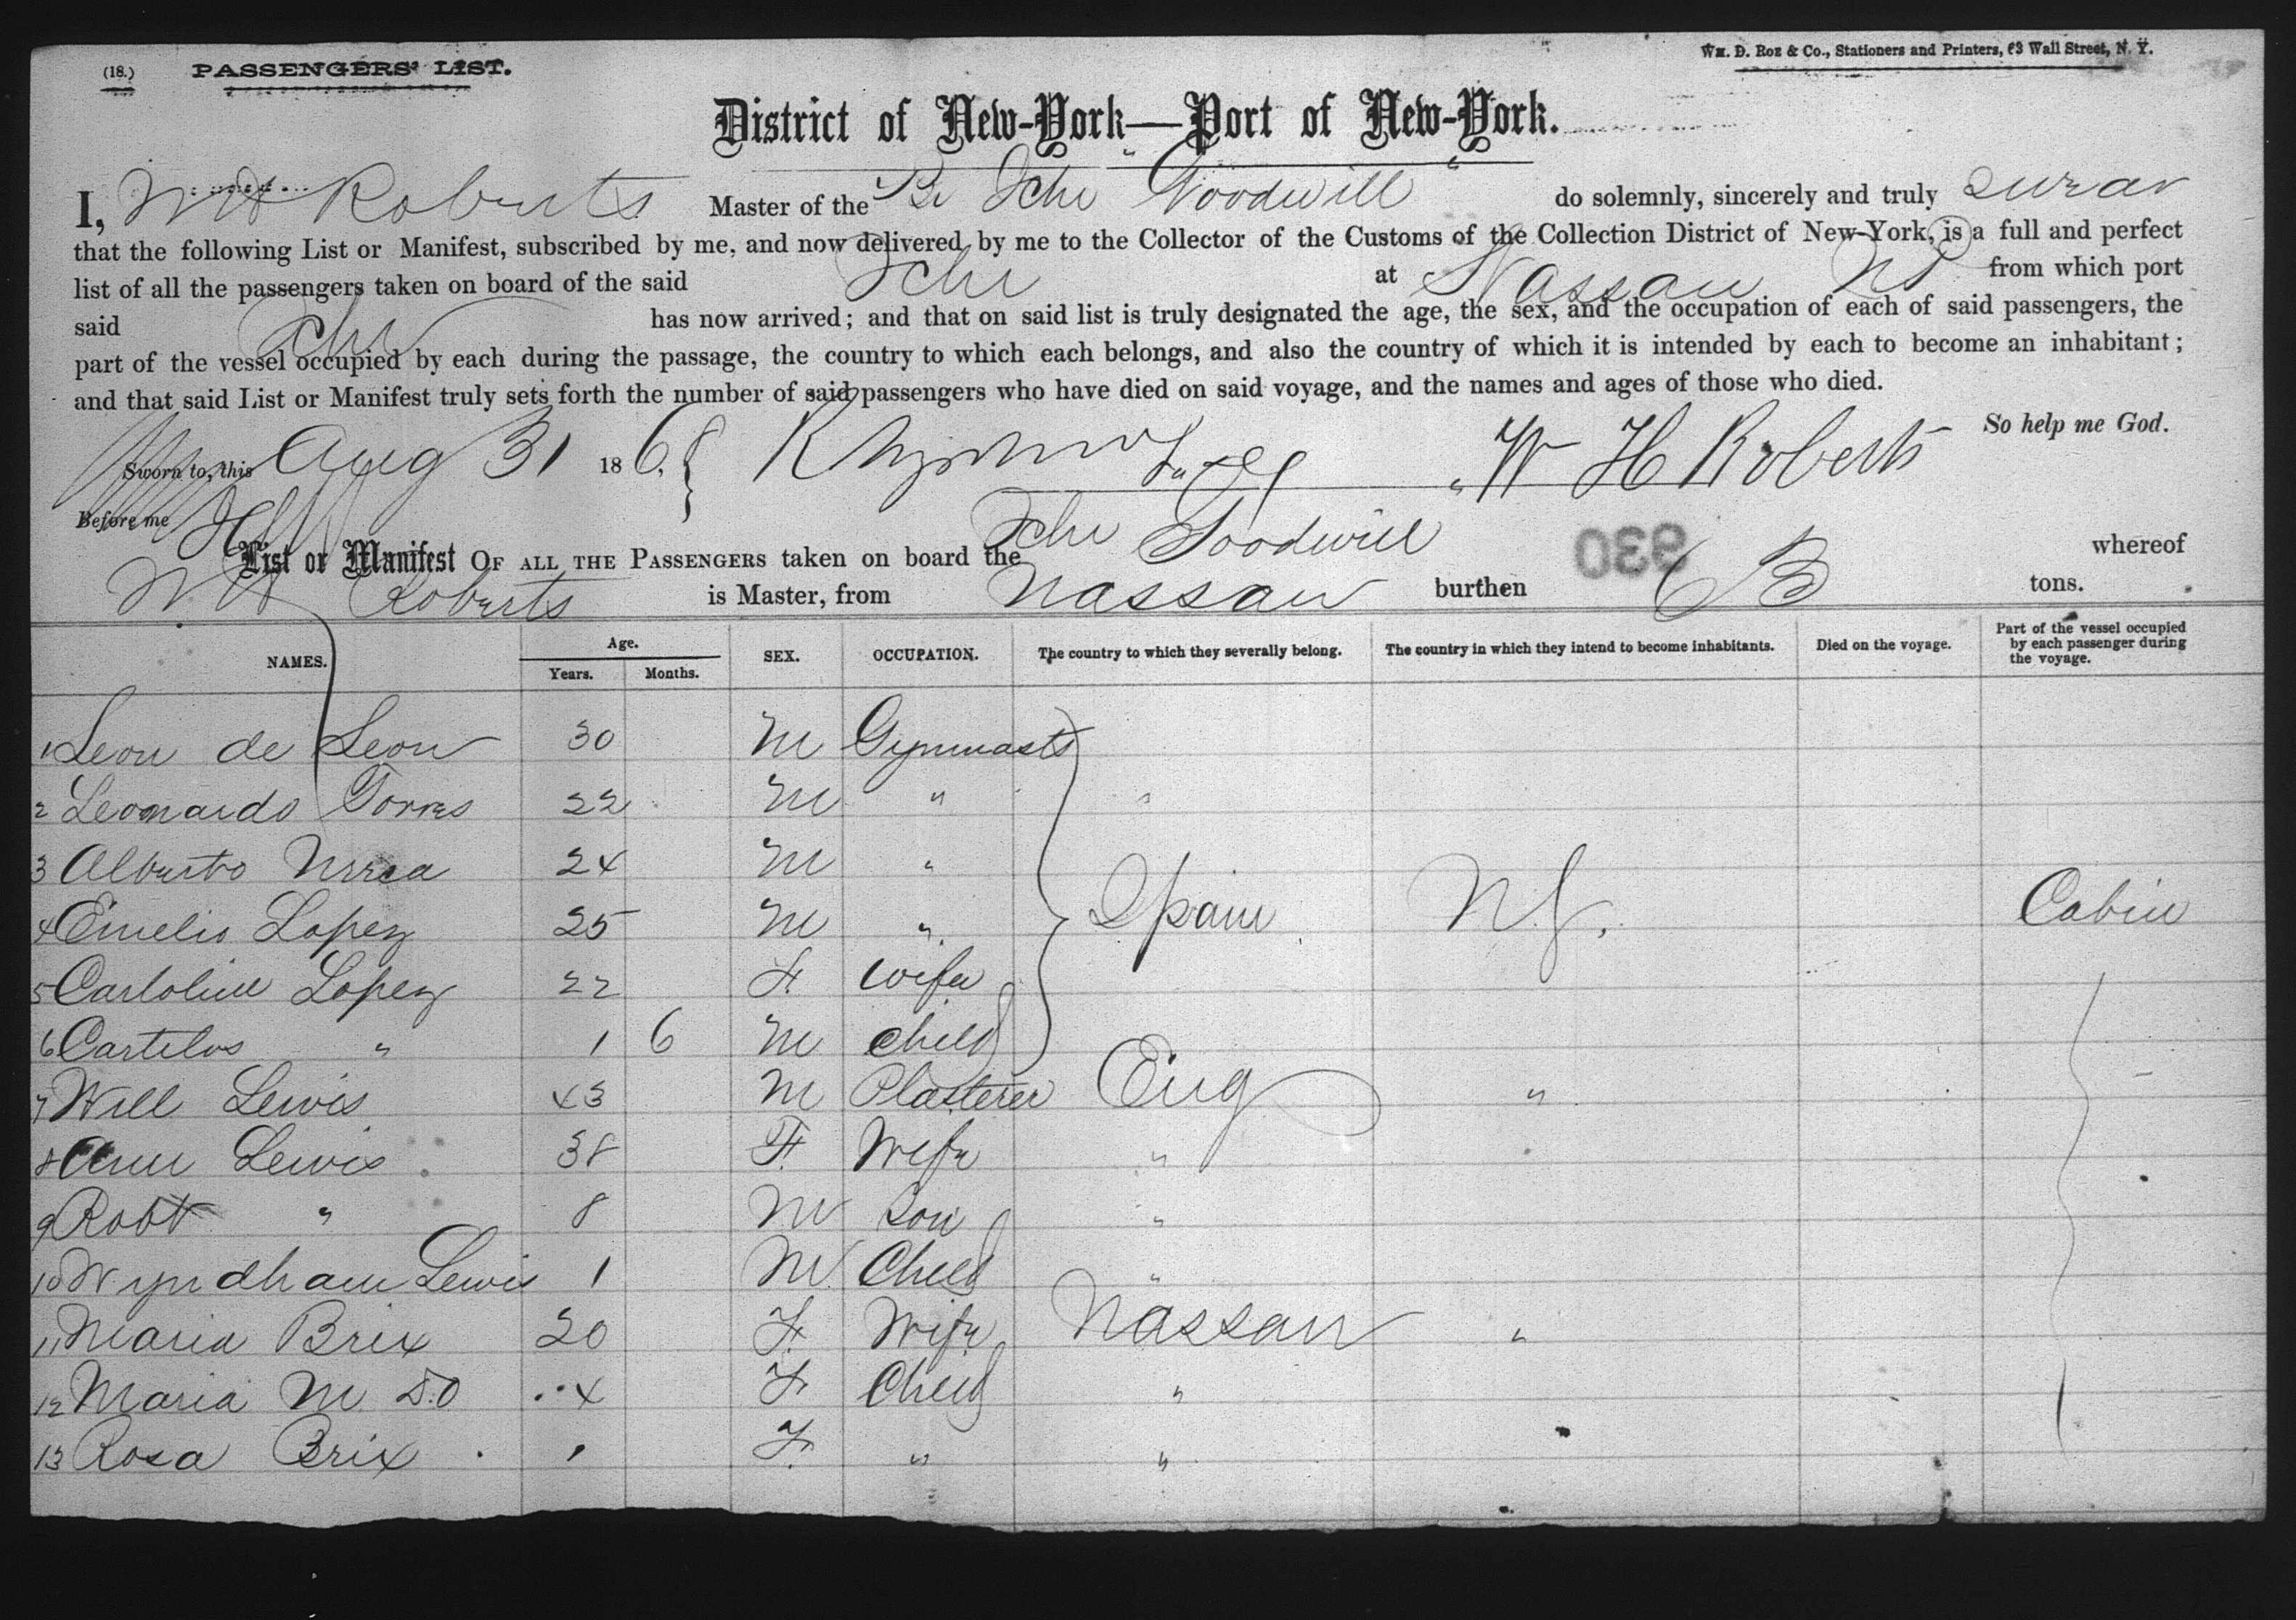 (18.) PASSENGERS' LIST. Wm. D. Roe & Co., Stationers and Printers, 63 Wall Street, N. Y.
District of New-York—Port of New-York.
I, W H Roberts Master of the Br Schr "Goodwill" do solemnly, sincerely and truly swear
that the following List or Manifest, subscribed by me, and now delivered by me to the Collector of the Customs of the Collection District of New-York, is a full and perfect
list of all the passengers taken on board of the said Schr at Nassau NP from which port
said Schr has now arrived; and that on said list is truly designated the age, the sex, and the occupation of each of said passengers, the
part of the vessel occupied by each during the passage, the country to which each belongs, and also the country of which it is intended by each to become an inhabitant;
and that said List or Manifest truly sets forth the number of said passengers who have died on said voyage, and the names and ages of those who died.
So help me God.
Sworn to, this Aug 31 186 W H Roberts
Before me
List or Manifest OF ALL THE PASSENGERS taken on board the Schr Goodwill whereof
W H Roberts is Master, from Nassau burthen 930 tons.
NAMES. Age. Years. Months. SEX. OCCUPATION. The country to which they severally belong. The country in which they intend to become inhabitants. Died on the voyage. Part of the vessel occupied by each passenger during the voyage.
1 Leon de Leon 30 M Gymnasts
2 Leonardo Torres 22 M "
3 Alberto Urrea 24 M "
4 Emelio Lopez 25 M " Spain N.Y. Cabin
5 Carloline Lopez 22 F. Wife
6 Cartelos " 1 6 M Child
7 Will Lewis 43 M Plasterer Eng "
8 Ann Lewis 38 F. Wife " "
9 Robt " 8 M Son "
10 Wyndham Lewis 1 M Child "
11 Maria Brix 20 F. Wife Nassau "
12 Maria M. D.O 4 F. Child "
13 Rosa Brix 1 F. " "